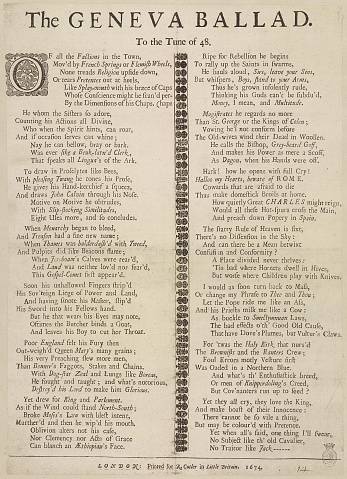 The GENEVA BALLAD.
To the Tune of 48.
OF all the Factions in the Town,
Mov'd by French Springs or Flemish Wheels,
None treads Religion upside down,
Or tears Pretences out at heels,
Like Splay-mouth with his brace of Caps
Whose Conscience might be scan'd perhaps
By the Dimensions of his Chaps.
He whom the Sisters so adore,
Counting his Actions all Divine,
Who when the Spirit hints, can roar,
And if occasion serves can whine;
Nay he can bellow, bray or bark.
Was ever sike a Beuk-larn'd Clerk,
That speaks all Linguas of the Ark.
To draw in Proselytes like Bees,
With pleasing Twang he tones his Prose,
He gives his Hand-kerchief a squeez,
And draws John Calvin through his Nose.
Motive on Motive he obtrudes,
With Slip-stocking Similitudes,
Eight Uses more, and so concludes.
When Monarchy began to bleed,
And Treason had a fine new name;
When Thames was balderdash'd with Tweed,
And Pulpits did like Beacons flame;
When Jeroboam's Calves were rear'd,
And Laud was neither lov'd nor fear'd,
This Gospel-Comet first appear'd.
Soon his unhallowed Fingers strip'd
His Sov'reign Liege of Power and Land,
And having smote his Master, slip'd
His Sword into his Fellows hand.
But he that wears his Eyes may note,
Oftimes the Butcher binds a Goat,
And leaves his Boy to cut her Throat.
Poor England felt his Fury then
Out-weigh'd Queen Mary's many grains;
His very Preaching slew more men,
Than Bonner's Faggots, Stakes and Chains.
With Dog-star Zeal and Lungs like Boreas,
He fought and taught; and what's notorious,
Destroy'd his Lord to make him Glorious.
Yet drew for King and Parliament,
As if the Wind could stand North-South;
Broke Moses's Law with blest intent,
Murther'd and then he wip'd his mouth.
Oblivion alters not his case,
Nor Clemency nor Acts of Grace
Can blanch an Æthiopian's Face.
Ripe for Rebellion he begins
To rally up the Saints in swarms,
He bauls aloud, Sirs, leave your Sins,
But whispers, Boys, stand to your Arms,
Thus he's grown insolently rude,
Thinking his Gods can't be subdu'd,
Money, I mean, and Multitude.
Magistrates he regards no more
Than St. George or the Kings of Colen;
Vowing he'l not conform before
The Old-wives wind their Dead in Woollen.
He calls the Bishop, Gray-hair'd Goff,
And makes his Power as mere a Scoff,
As Dagon, when his Hands were off.
Hark! how he opens with full Cry!
Hallow my Hearts, beware of ROME.
Cowards that are afraid to die
Thus make domestick Broils at home.
How quietly Great CHARLES might reign,
Would all these Hot-spurs cross the Main,
And preach down Popery in Spain.
The starry Rule of Heaven is fixt,
There's no Dissension in the Sky:
And can there be a Mean betwixt
Confusion and Conformity?
A Place divided never thrives:
'Tis bad where Hornets dwell in Hives,
But worse where Children play with Knives.
I would as soon turn back to Mass,
Or change my Phrase to Thee and Thou;
Let the Pope ride me like an Ass,
And his Priests milk me like a Cow;
As buckle to Smectymnuan Laws,
The bad effects o'th' Good Old Cause,
That have Dove's Plumes, but Vultur's Claws.
For 'twas the Holy Kirk that nurs'd
The Brownists and the Ranters Crew;
Foul Errors motly Vesture first
Was Oaded in a Northern Blue.
And what's th' Enthusiastick breed,
Or men of Knipperdoling's Creed,
But Cov'nanters run up to seed?
Yet they all cry, they love the King,
And make boast of their Innocence:
There cannot be so vile a thing,
But may be colour'd with Pretence.
Yet when all's said, one thing I'll swear,
No Subject like th' old Cavalier,
No Traitor like Jack-——
LONDON: Printed for R. Cutler in Little Britain. 1674.